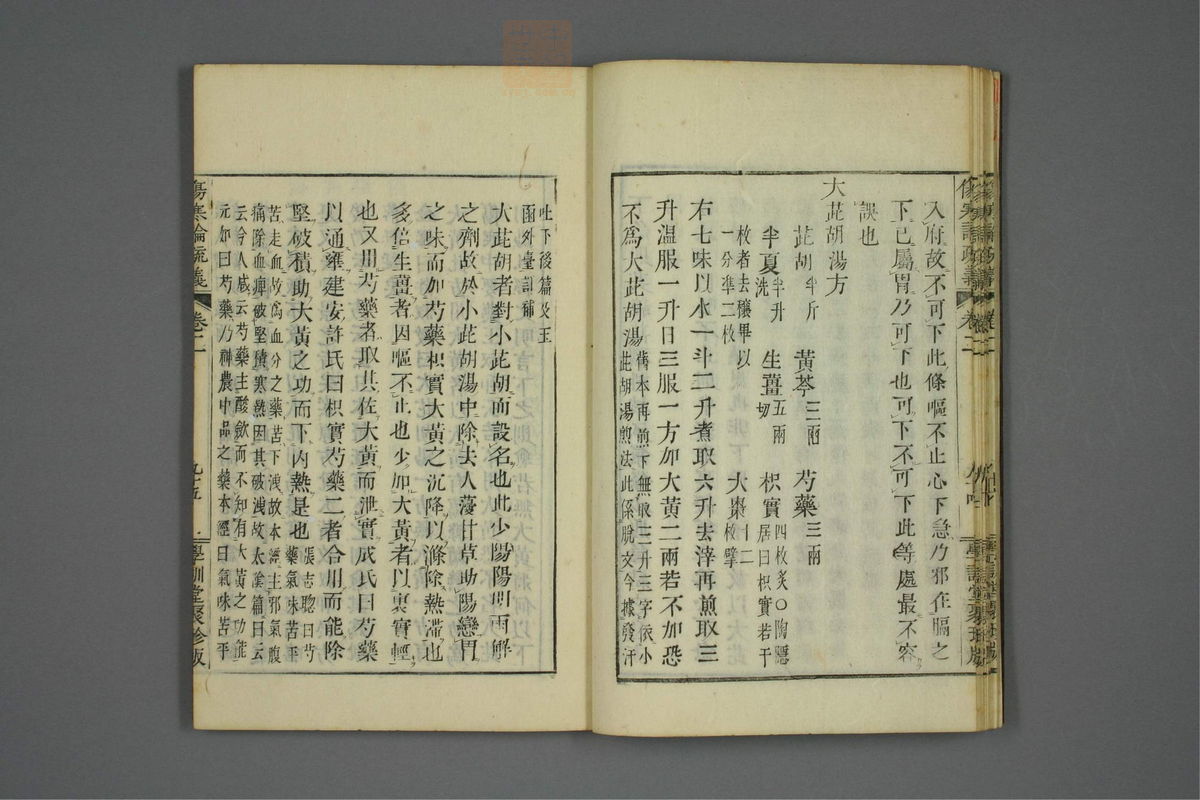 入府故不可下此條嘔不止心下急乃邪在膈之
下已屬胃乃可下也可下不可下此等處最不容
誤也
大茈胡湯方
茈胡半斤 黃芩三兩 芍藥三兩
半夏半升洗 生薑五兩切 枳實四枚炙〇陶隱居曰枳實若干
枚者去穰畢以一分準二枚 大棗十二枚擘
右七味以水一斗二升煮取六升去滓再煎取三
升溫服一升日三服一方加大黃二兩若不加恐
不為大茈胡湯舊本再煎下無取三升三字依小茈胡湯煎法此係脫文今據發汗
吐下後篇及玉函外臺訂補
大茈胡者對小茈胡而設名也此少陽陽明兩解
之劑故於小茈胡湯中除去人薓甘草助陽戀胃
之味而加芍藥枳實大黃之沉降以滌除熱滯也
多倍生薑者因嘔不止也少加大黃者以裏實輕
也又用芍藥者取其佐大黃而泄實成氏曰芍藥
以通壅建安許氏曰枳實芍藥二者合用而能除
堅破積助大黃之功而下內熱是也張志聰曰芍藥氣味苦平
苦走血故為血分之藥苦下洩故本經主邪氣腹
痛除血痺破堅積寒熱因其破洩故太陰篇曰云
云今人咸云芍藥主酸斂而不知有大黃之功能
元如曰芍藥乃神農中品之藥本經曰氣味苦平
傷寒論疏義
卷二
九十五
學訓堂聚珍版